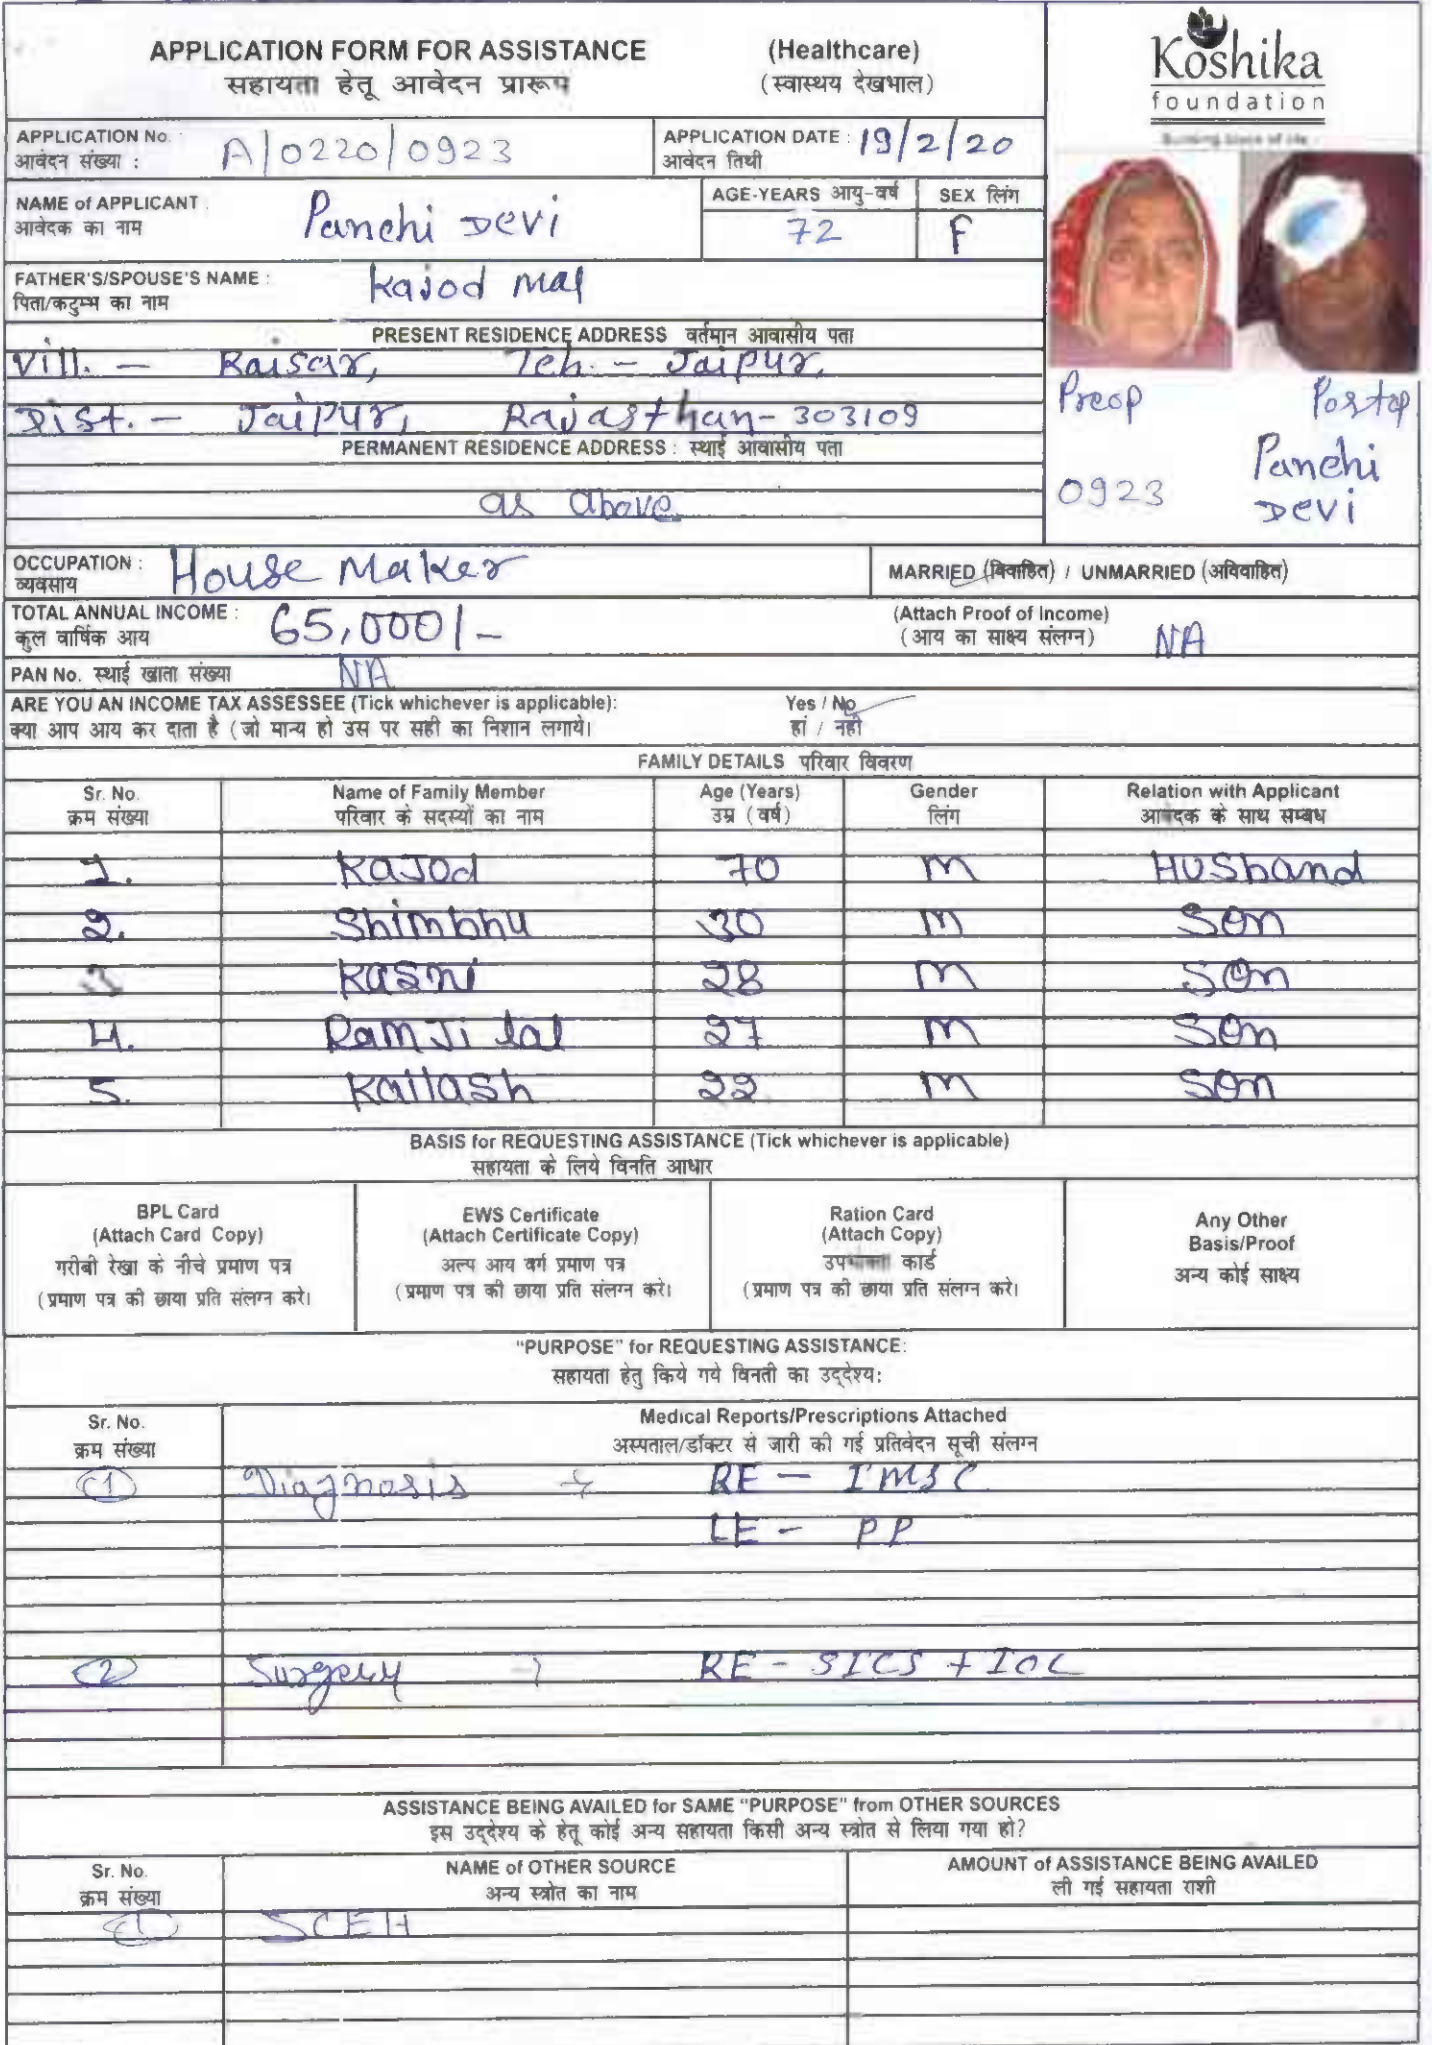 APPLICATION FORM FOR ASSISTANCE (Healthcare)
सहायता हेतू आवेदन प्रारूप (स्वास्थय देखभाल)
Koshika
foundation
APPLICATION No. :
आवेदन संख्या : A/0220/0923
APPLICATION DATE : 19/2/20
आवेदन तिथी
NAME of APPLICANT :
आवेदक का नाम Panchi Devi
AGE-YEARS आयु-वर्ष SEX लिंग
72 F
FATHER'S/SPOUSE'S NAME :
पिता/कटुम्भ का नाम Kajod Mal
PRESENT RESIDENCE ADDRESS वर्तमान आवासीय पता
Vill. - Raisar, Teh. - Jaipur,
Dist. - Jaipur, Rajasthan - 303109
PERMANENT RESIDENCE ADDRESS : स्थाई आवासीय पता
as above
Preop Postop
0923 Panchi
Devi
OCCUPATION : House Maker
व्यवसाय
MARRIED (विवाहित) / UNMARRIED (अविवाहित)
TOTAL ANNUAL INCOME : 65,000/-
कुल वार्षिक आय
(Attach Proof of Income)
(आय का साक्ष्य संलग्न) NA
PAN No. स्थाई खाता संख्या NA
ARE YOU AN INCOME TAX ASSESSEE (Tick whichever is applicable): Yes / No
क्या आप आय कर दाता है (जो मान्य हो उस पर सही का निशान लगाये। हां / नही
FAMILY DETAILS परिवार विवरण
Sr. No. Name of Family Member Age (Years) Gender Relation with Applicant
क्रम संख्या परिवार के सदस्यों का नाम उम्र (वर्ष) लिंग आवेदक के साथ सम्बंध
1. Kajod 70 M Husband
2. Shimbhu 30 M Son
3 Kasni 28 M Son
4. Ramji lal 27 M Son
5. Kailash 22 M Son
BASIS for REQUESTING ASSISTANCE (Tick whichever is applicable)
सहायता के लिये विनति आधार
BPL Card
(Attach Card Copy)
गरीबी रेखा के नीचे प्रमाण पत्र
(प्रमाण पत्र की छाया प्रति संलग्न करे।
EWS Certificate
(Attach Certificate Copy)
अल्प आय वर्ग प्रमाण पत्र
(प्रमाण पत्र की छाया प्रति संलग्न करे।
Ration Card
(Attach Copy)
कार्ड
(प्रमाण पत्र की छाया प्रति संलग्न करे।
Any Other
Basis/Proof
अन्य कोई साक्ष्य
"PURPOSE" for REQUESTING ASSISTANCE:
सहायता हेतु किये गये विनती का उद्देश्य:
Sr. No. Medical Reports/Prescriptions Attached
क्रम संख्या अस्पताल/डॉक्टर से जारी की गई प्रतिवेदन सूची संलग्न
(1) Diagnosis → RE - IMSC
LE - PP
(2) Surgery → RE - SICS + IOL
ASSISTANCE BEING AVAILED for SAME "PURPOSE" from OTHER SOURCES
इस उद्देश्य के हेतू कोई अन्य सहायता किसी अन्य स्त्रोत से लिया गया हो?
Sr. No. NAME of OTHER SOURCE AMOUNT of ASSISTANCE BEING AVAILED
क्रम संख्या अन्य स्त्रोत का नाम ली गई सहायता राशी
(1) SCEH